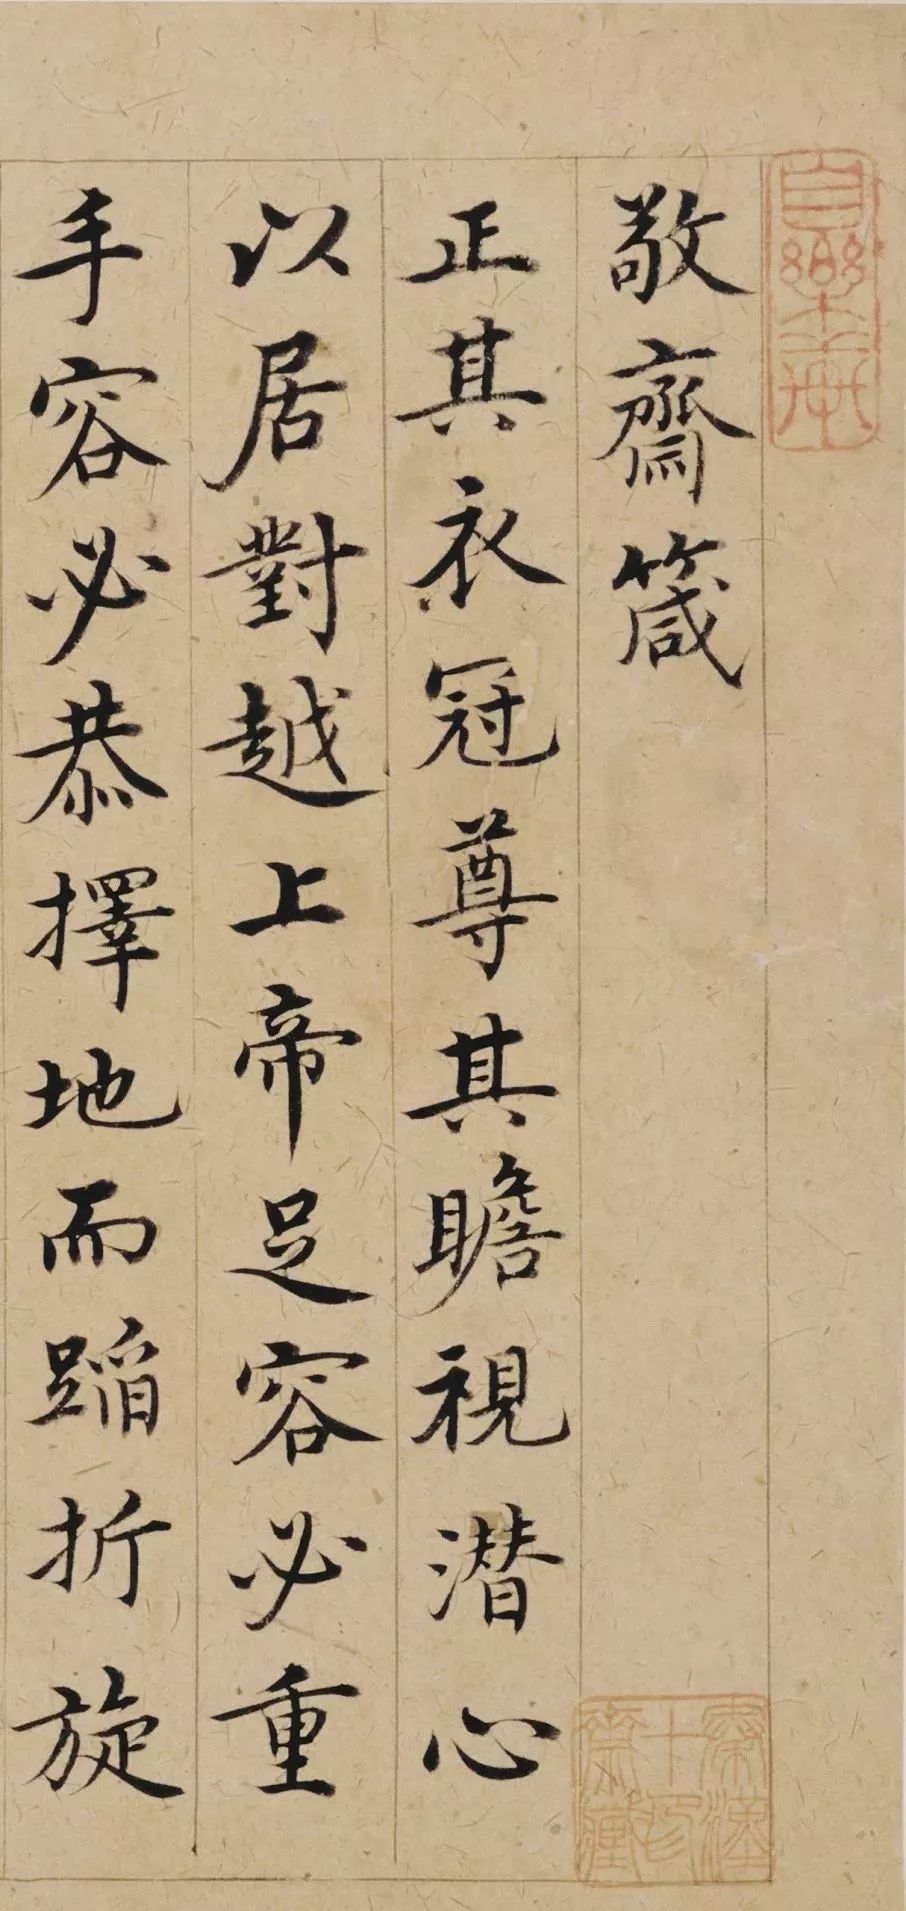 敬齋箴
正其衣冠尊其瞻視潜心
以居對越上帝足容必重
手容必恭擇地而蹈折旋
秦漢
十印
齋藏